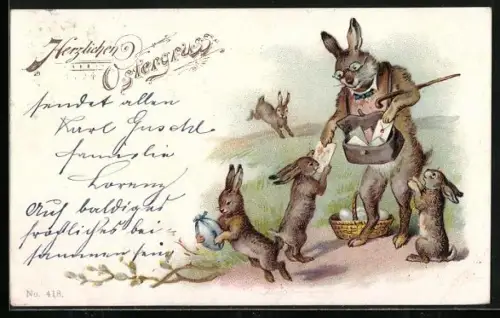 Herzlichen
Ostergruß
sendet allen
Karl Guschl
familie
Lorenz
Auf baldiges
fröhliches bei-
sammen sein
No. 418.